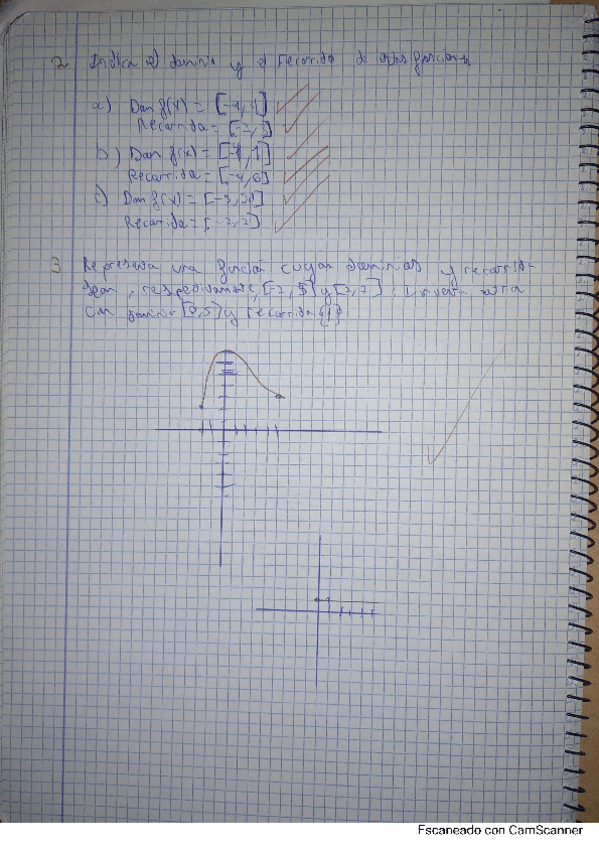 2 Indica el dominio y el recorrido de estas funciones
a) Dom f(x) = [-4,4]
Recorrido = [-2,3]
b) Dom f(x) = [-4,1]
Recorrido = [-4,6]
c) Dom f(x) =
Recorrido = [-2,2]
3 Representa una función cuyos dominios y recorrido
sean, respectivamente, [-2,5] y [2,7]. Inventa otra
con dominio [0,5] y recorrido {1}
Escaneado con CamScanner